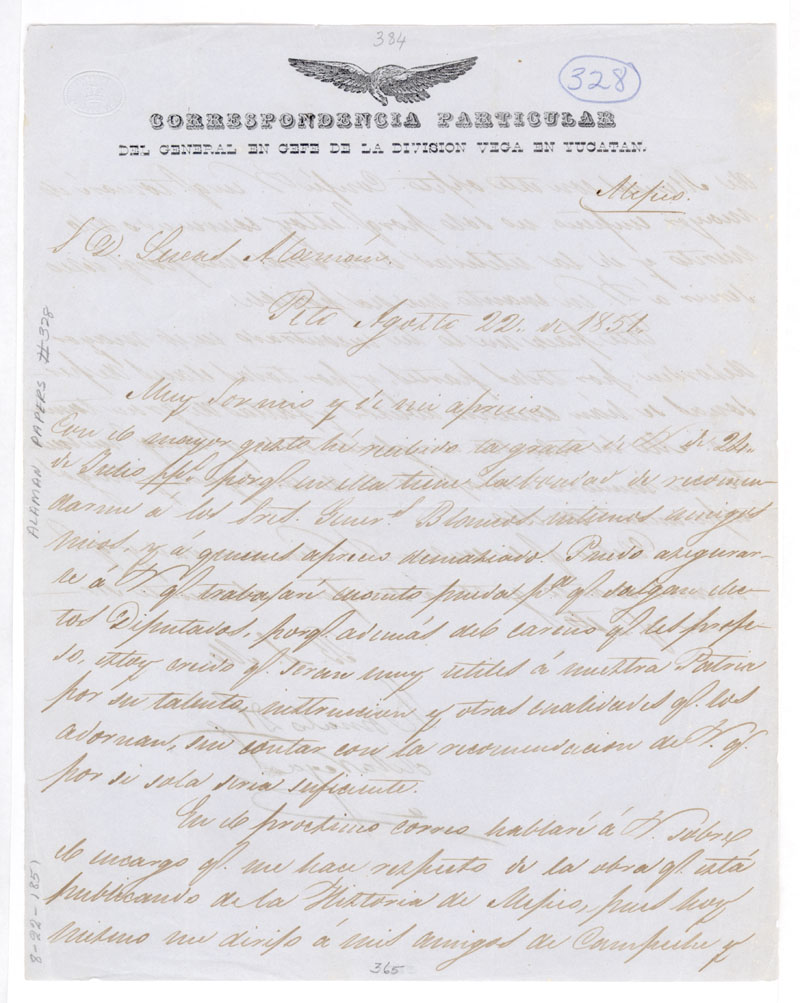 384
328
CORRESPONDENCIA PARTICULAR
DEL GENERAL EN GEFE DE LA DIVISION VEGA EN YUCATAN.
Mejico.
S. D. Lucas Alamán.
Peto Agosto 22. de 1851.
Muy Sor mio y de mi aprecio.
Con el mayor gusto hé recibido la grata de V. de 24.
de Julio pp.º porq.e en ella tiene la bondad de recomen-
darme á los Sres. Gener.s Blancos, intimos amigos
mios, y á quienes aprecio demaziado. Puedo asegurar-
le á V. q.e trabajaré cuanto pueda p.a q.e salgan elec-
tos Diputados, porq.e además del cariño q.e les profe-
so, estoy creido q.e seran muy utiles á nuestra Patria
por su talento, instruccion y otras cualidades q.e los
adornan, sin contar con la recomendacion de V. q.e
por si sola seria suficiente.
En el procsimo correo hablaré á V. sobre
el encargo q.e me hace respecto de la obra q.e está
publicando de la Historia de Mejico, pues hoy
mismo me dirijo á mis amigos de Campeche y
365
ALAMAN PAPERS #328
8-22-1851